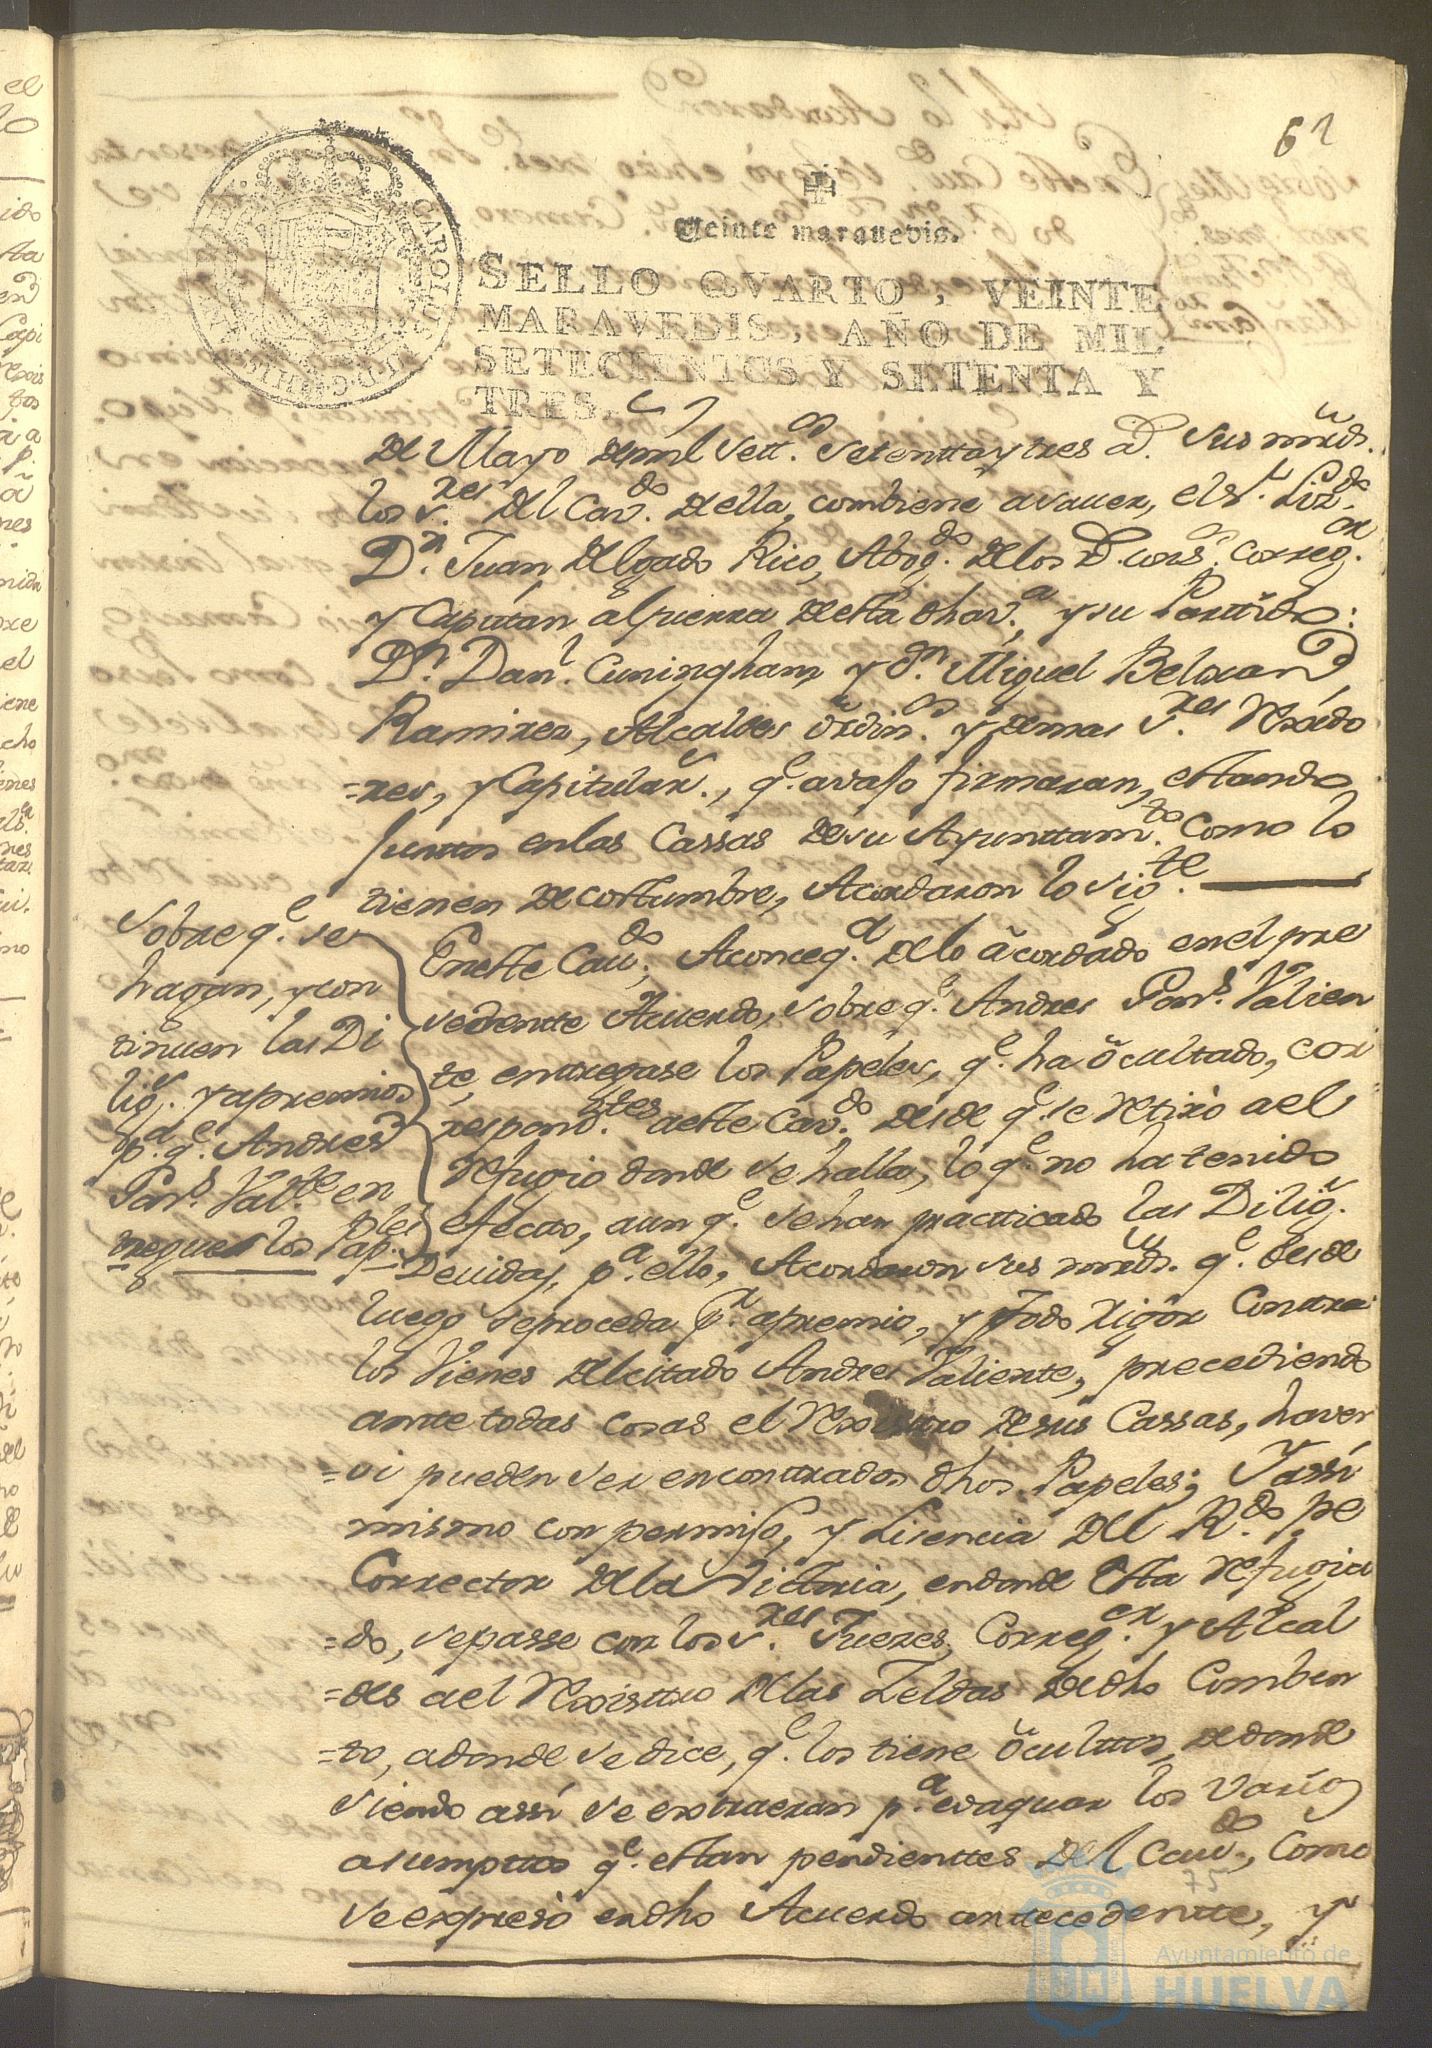 62
Veinte maravedis.
SELLO QVARTO, VEINTE
MARAVEDIS, AÑO DE MIL
SETECIENTOS Y SETENTA Y
TRES.
CAROLUS
de Mayo de mil sett.os setentta y tres a.s sus mrds.
los s.res del Cav.do della, combiene a saver, el s.r Liz.do
D.n Juan Delgado Rico, Abog.do de los R. cons.os Correg.or
y Capitan a guerra de esta dha v.a y su Partido:
D.n Dan.l Cuningham y d.n Miguel Beltran
Ramirez, Alcaldes ordin.os y demas s.res Rexido
=res, y Capitular.s, q.e avaxo firmaran, estando
Juntos en las Cassas de su Ayunttam.to Como lo
tienen de costumbre, Acordaron lo sig.te
Sobre q.e se
hagan, y con
tinuen las Di
lig.s y apremios
p.a q.e Andres
Fon.s Val.te en
tregue los Pap.les
En este Cav.do, A conceq.a de lo acordado en el pre
sedentte Acuerdo, sobre q.e Andres Fons.s Valien
te, entregase los Papeles, q.e ha ocultado, cor
respond.ttes a este Cav.do desde q.e se retiró a el
refugio donde se halla, lo q.e no ha tenido
efecto, aun q.e se han practticado las Dilig.s
Devidas, p.a ello, Acordaron sus mrds. q.e desde
luego se proceda p.r apremio, y todo rigor Conttra
los Vienes del citado Andres Valiente, precediendo
antte todas cosas el Rexisttro de sus Cassas, haver
=si pueden ser enconttrados dhos Papeles; Y assi
mismo con permiso, y Lisencia del R.do P.e
Corrector de la Victoria, en donde Esta refugia
=do, se passe con los s.res Jueces, Correg.or y Alcal
=des a el Rexisttro de las Zeldas de dho Comben
=to, a donde se dice, q.e los tiene ocultos, de donde
siendo assi se extraeran p.a evaquar los varios
asumpttos q.e estan pendienttes del Cav.do, Como
se expresó en dho Acuerdo anttecedentte, y
75
Ayuntamiento de
HUELVA